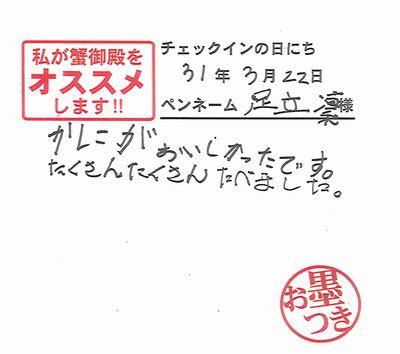 私が蟹御殿を
オススメ
します!!
チェックインの日にち
31年3月22日
ペンネーム 足立 凛様
かにがおいしかったです。
たくさんたくさんたべました。
お墨つき